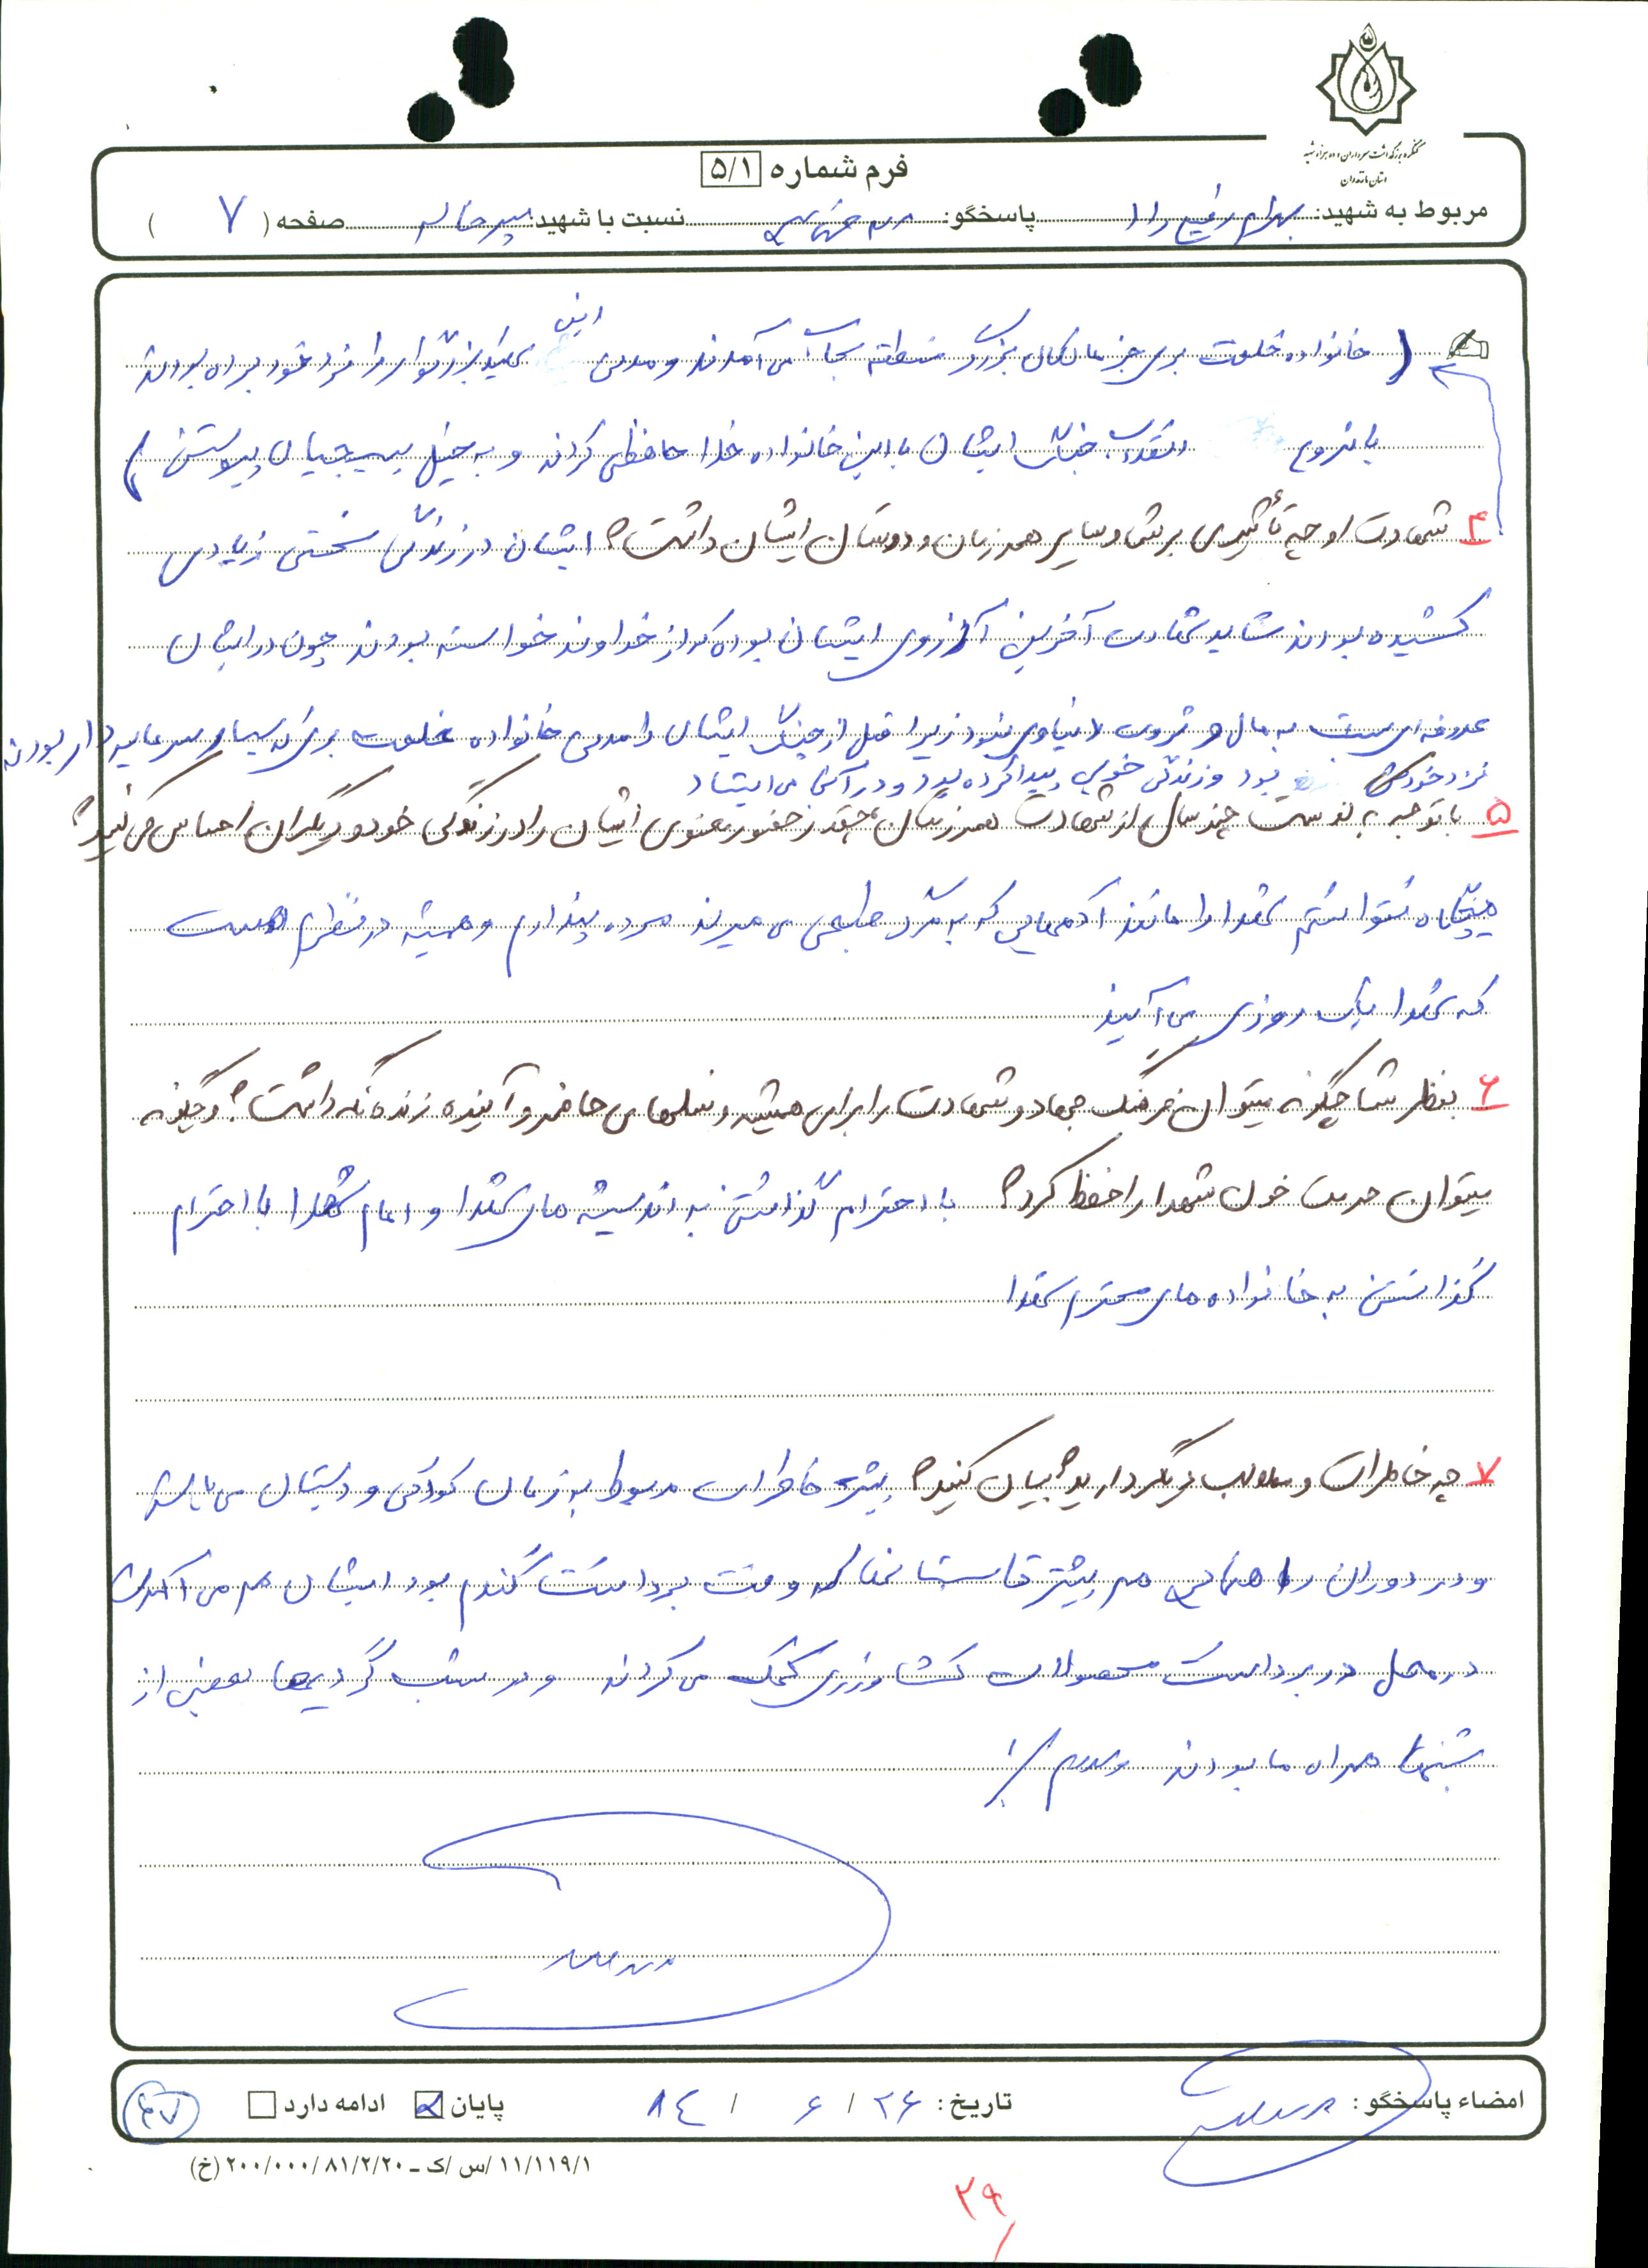 کنگره بزرگداشت سرداران و ده هزار شهید
استان مازندران
فرم شماره ۵/۱
مربوط به شهید: بهرام پاسخگو: نسبت با شهید: پسر خاله صفحه ( ۷ )
( خانواده خلعت بری جز مالکان بزرگ منطقه بحساب می آمدند و مدتی این شهید بزرگوار را نزد خود برده بودند
با شروع انقلاب ایشان با این خانواده خدا حافظی کردند و به خیل بسیجیان پیوستند )
۴ شهادت او چه تأثیری بر شما و سایر همرزمان و دوستان ایشان داشت؟ ایشان در زندگی سختی زیادی
کشیده بودند شاید شهادت آخرین آرزوی ایشان بوده که از خداوند خواسته بودند چون در ایشان
علاقه ای نسبت به مال و ثروت دنیاوی نبود زیرا قبل از جنگ ایشان را مدتی خانواده خلعت بری که بسیار سرمایه دار بودند
نزد خود بود و زندگی خوبی پیدا کرده بود و در آسایش
۵ با توجه به گذشت چند سال از شهادت همرزمتان، چقدر حضور معنوی ایشان را در زندگی خود و دیگران احساس می کنید؟
هیچگاه نتوانستم شهدا را مانند آدمهایی که به مرگ طبیعی می میرند مرده پندارم و همیشه در نظرم هست
که شهدا یک روزی می آیند
۶ بنظر شما چگونه میتوان فرهنگ جهاد و شهادت را برای همیشه و نسلهای حاضر و آینده زنده نگه داشت؟ و چگونه
میتوان حرمت خون شهدا را حفظ کرد؟ با احترام گذاشتن به اندیشه های شهدا و امام شهدا با احترام
گذاشتن به خانواده های محترم شهدا
۷ چه خاطرات و مطالب دیگر دارید؟ بیان کنید؟ بیشتر خاطرات مربوط به زمان کودکی و دبستان می باشد
و در دوران راهنمایی هم بیشتر تابستانها که وقت برداشت گندم بود ایشان هم می آمدند
در محل در برداشت محصولات کشاورزی کمک می کردند و در شب گردیها بعضی از
شبها همراه ما بودند والسلام
امضاء پاسخگو: تاریخ: ۲۶ / ۶ / ۸۴ پایان ادامه دارد
۱۱/۱۱۹/۱ /س /ک ـ ۲۰۰/۰۰۰/۸۱/۲/۲۰ (خ)
۲۹